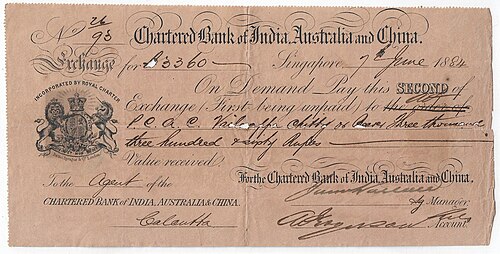 No 26/93 Chartered Bank of India, Australia and China.
Exchange for Rs 3360 Singapore, 7th June 1884
INCORPORATED BY ROYAL CHARTER
On Demand Pay this SECOND of
Exchange (First being unpaid) to the Order of
P.C.A.C. Chitty or Three thousand
three hundred & sixty Rupees
Value received.
To the Agent of the For the Chartered Bank of India, Australia and China.
CHARTERED BANK OF INDIA, AUSTRALIA & CHINA. Manager.
Calcutta Account.